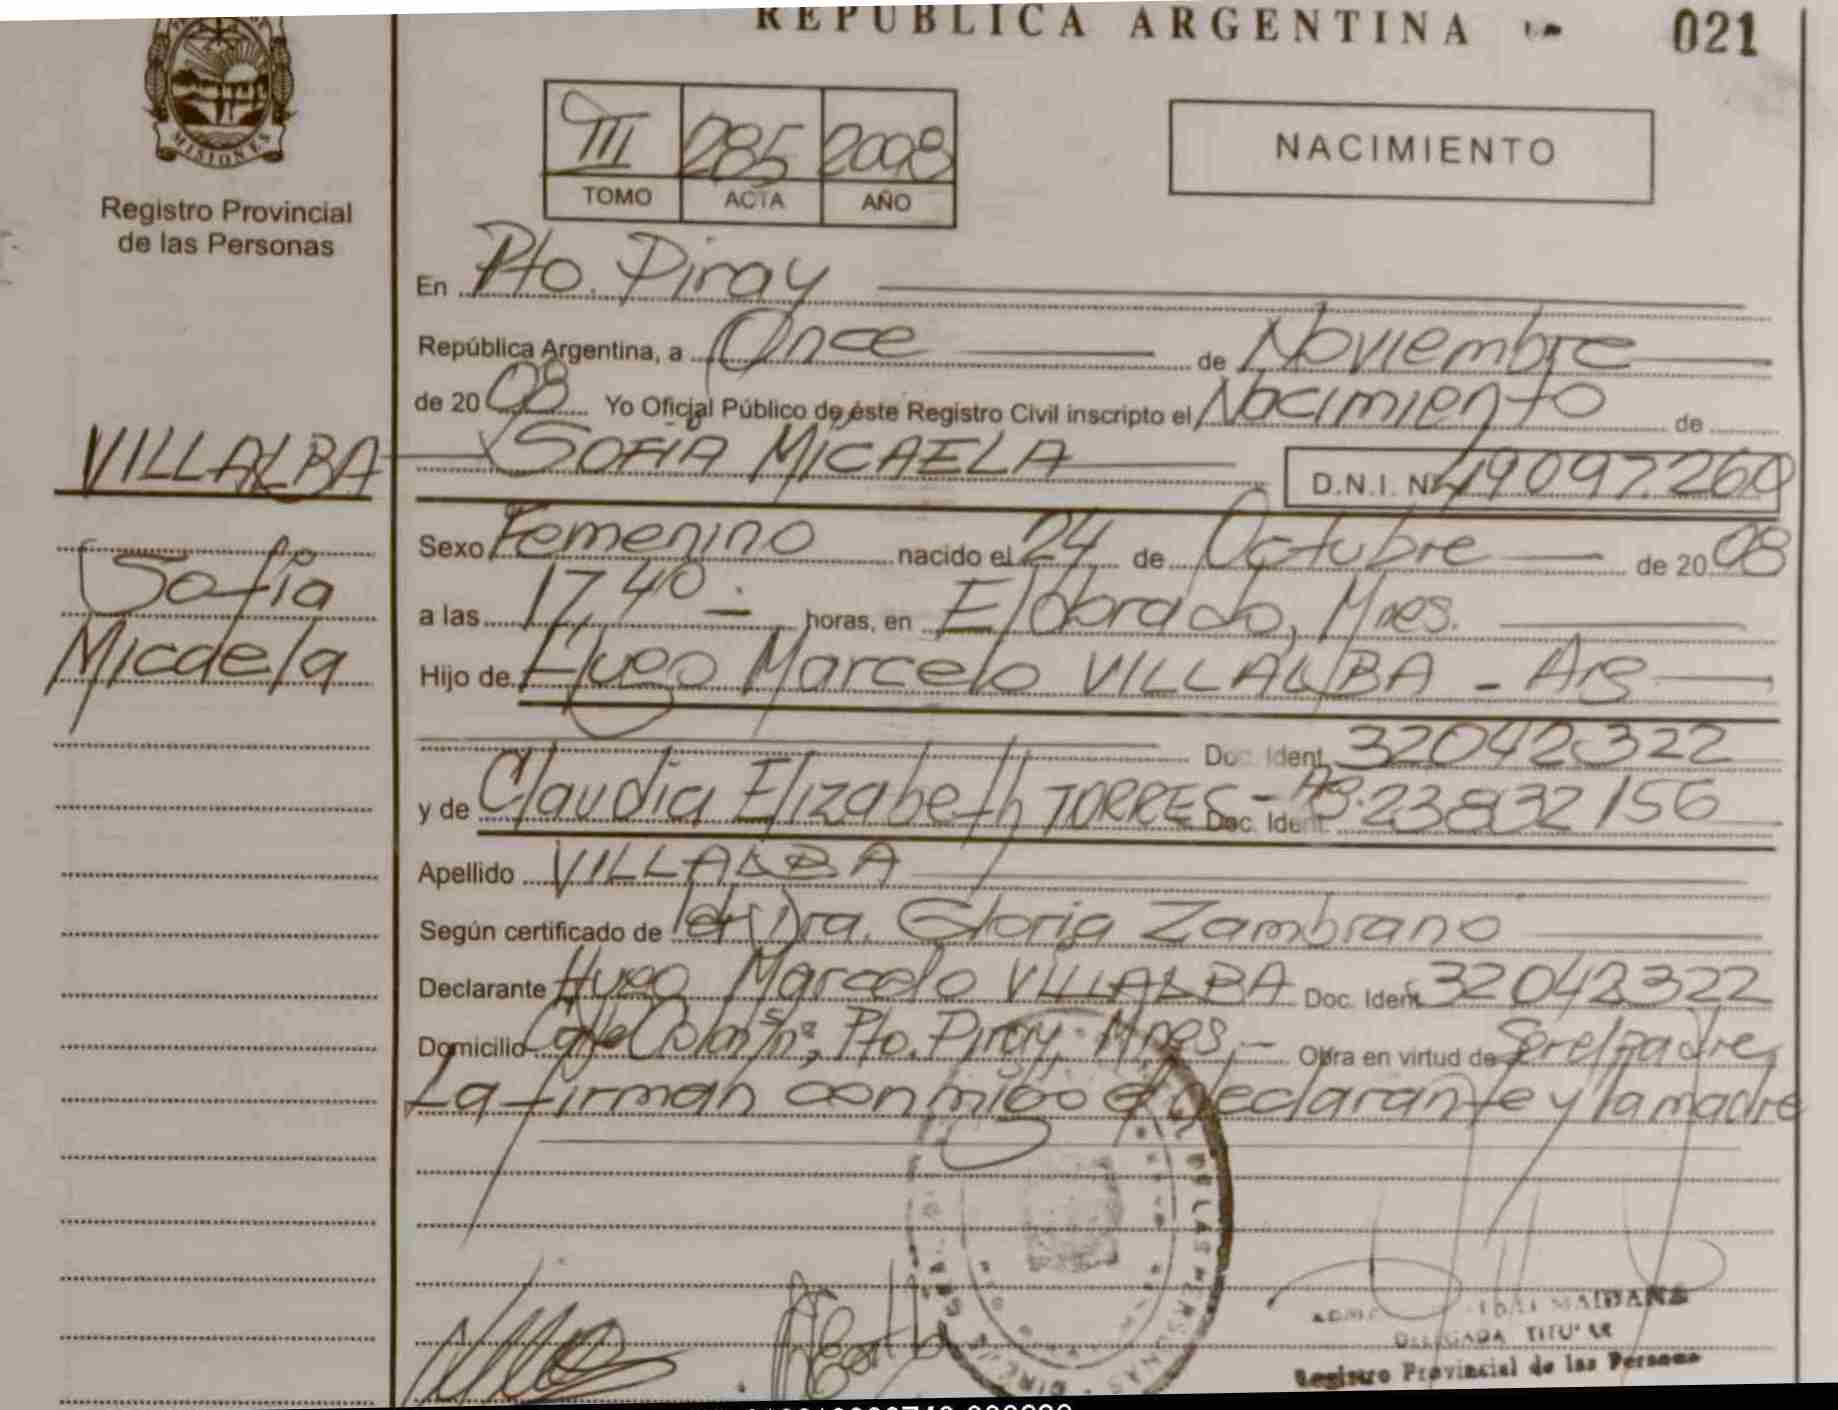 REPUBLICA ARGENTINA 021
MISIONES
Registro Provincial
de las Personas
III 285 2008
TOMO ACTA AÑO
NACIMIENTO
En Pto. Piray
República Argentina, a Once de Noviembre
de 2008 Yo Oficial Público de éste Registro Civil inscripto el Nacimiento de
VILLALBA SOFIA MICAELA D.N.I. Nº 49097.260
Sofia
Micaela
Sexo Femenino nacido el 24 de Octubre de 2008
a las 17,40 horas, en Eldorado, Mnes.
Hijo de Hugo Marcelo VILLALBA - Arg
Doc. Ident. 32042322
y de Claudia Elizabeth TORRES - Arg. Doc. Ident. 23832156
Apellido VILLALBA
Según certificado de la Dra. Gloria Zambrano
Declarante Hugo Marcelo VILLALBA Doc. Ident. 32042322
Domicilio Calle Colón s/nº, Pto. Piray, Mnes. - Obra en virtud de Ser el padre
La firman conmigo el declarante y la madre
MAIDANA
DELEGADA TITULAR
Registro Provincial de las Personas